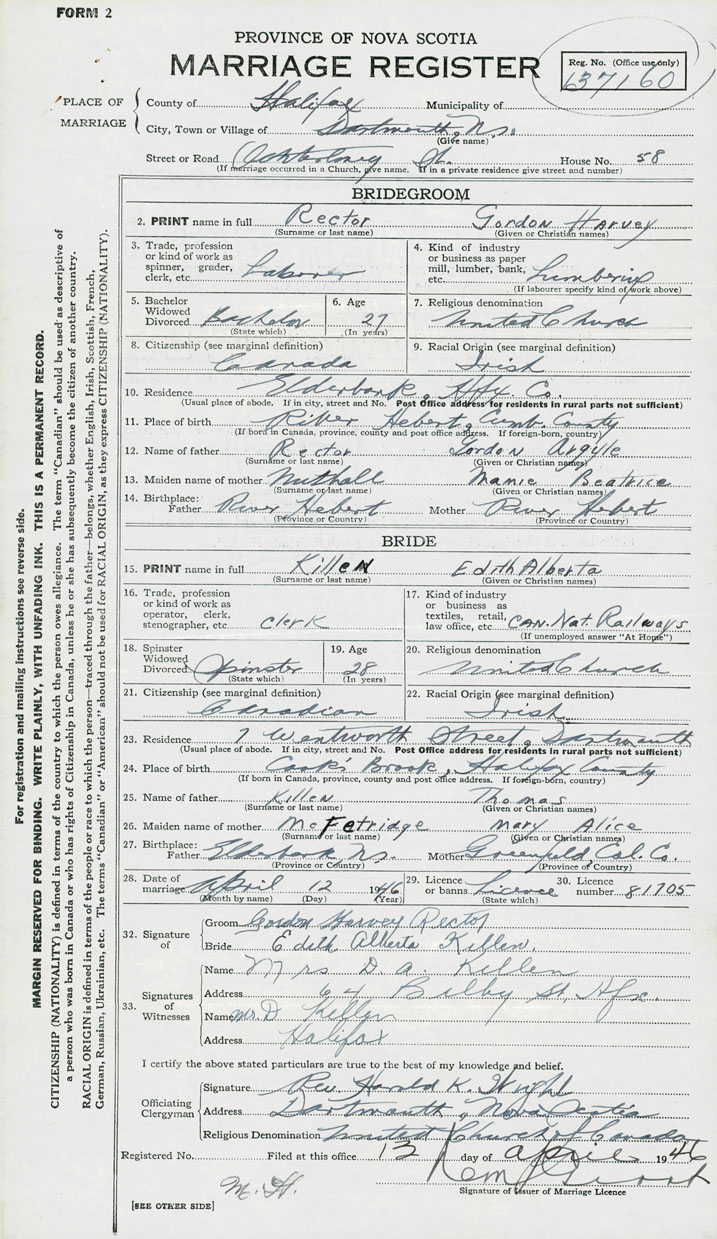 FORM 2
PROVINCE OF NOVA SCOTIA
MARRIAGE REGISTER
Reg. No. (Office use only)
637160
PLACE OF MARRIAGE
County of Halifax Municipality of
City, Town or Village of Dartmouth, N.S.
(Give name)
Street or Road St. House No. 58
(If marriage occurred in a Church, give name. If in a private residence give street and number)
BRIDEGROOM
2. PRINT name in full Rector Gordon Harvey
(Surname or last name) (Given or Christian names)
3. Trade, profession or kind of work as spinner, grader, clerk, etc. Laborer
4. Kind of industry or business as paper mill, lumber, bank, etc. Lumbering
(If labourer specify kind of work above)
5. Bachelor Widowed Divorced Bachelor
(State which)
6. Age 27
(In years)
7. Religious denomination United Church
8. Citizenship (see marginal definition) Canada
9. Racial Origin (see marginal definition) Irish
10. Residence Elderbank, Hfx. Co.
(Usual place of abode. If in city, street and No. Post Office address for residents in rural parts not sufficient)
11. Place of birth River Hebert, Cumb. County
(If born in Canada, province, county and post office address. If foreign-born, country)
12. Name of father Rector Gordon Argyle
(Surname or last name) (Given or Christian names)
13. Maiden name of mother Nuthall Mamie Beatrice
(Surname or last name) (Given or Christian names)
14. Birthplace: Father River Hebert Mother River Hebert
(Province or Country) (Province or Country)
BRIDE
15. PRINT name in full Killen Edith Alberta
(Surname or last name) (Given or Christian names)
16. Trade, profession or kind of work as operator, clerk, stenographer, etc. clerk
17. Kind of industry or business as textiles, retail, law office, etc. CAN. Nat. Railways
(If unemployed answer "At Home")
18. Spinster Widowed Divorced Spinster
(State which)
19. Age 28
(In years)
20. Religious denomination United Church
21. Citizenship (see marginal definition) Canadian
22. Racial Origin (see marginal definition) Irish
23. Residence 7 Wentworth Street, Dartmouth
(Usual place of abode. If in city, street and No. Post Office address for residents in rural parts not sufficient)
24. Place of birth Cook's Brook, Halifax County
(If born in Canada, province, county and post office address. If foreign-born, country)
25. Name of father Killen Thomas
(Surname or last name) (Given or Christian names)
26. Maiden name of mother McFetridge Mary Alice
(Surname or last name) (Given or Christian names)
27. Birthplace: Father Elderbank N.S. Mother Greenfield, Col. Co.
(Province or Country) (Province of Country)
28. Date of marriage April 12 1946
(Month by name) (Day) (Year)
29. Licence or banns Licence
(State which)
30. Licence number 81705
32. Signature of
Groom Gordon Harvey Rector
Bride Edith Alberta Killen.
33. Signatures of Witnesses
Name Mrs D. A. Killen
Address 64 Bilby St, Hfx.
Name Mr. D Killen
Address Halifax
I certify the above stated particulars are true to the best of my knowledge and belief.
Officiating Clergyman
Signature Rev. Harold K. Wright
Address Dartmouth, Nova Scotia
Religious Denomination United Church of Canada
Registered No. Filed at this office 13 day of April 1946
Signature of Issuer of Marriage Licence
M. H.
[SEE OTHER SIDE]
For registration and mailing instructions see reverse side.
MARGIN RESERVED FOR BINDING. WRITE PLAINLY, WITH UNFADING INK. THIS IS A PERMANENT RECORD.
CITIZENSHIP (NATIONALITY) is defined in terms of the country to which the person owes allegiance. The term "Canadian" should be used as descriptive of
a person who was born in Canada or who has rights of Citizenship in Canada, unless he or she has subsequently become the citizen of another country.
RACIAL ORIGIN is defined in terms of the people or race to which the person—traced through the father—belongs, whether English, Irish, Scottish, French,
German, Russian, Ukrainian, etc. The terms "Canadian" or "American" should not be used for RACIAL ORIGIN, as they express CITIZENSHIP (NATIONALITY).